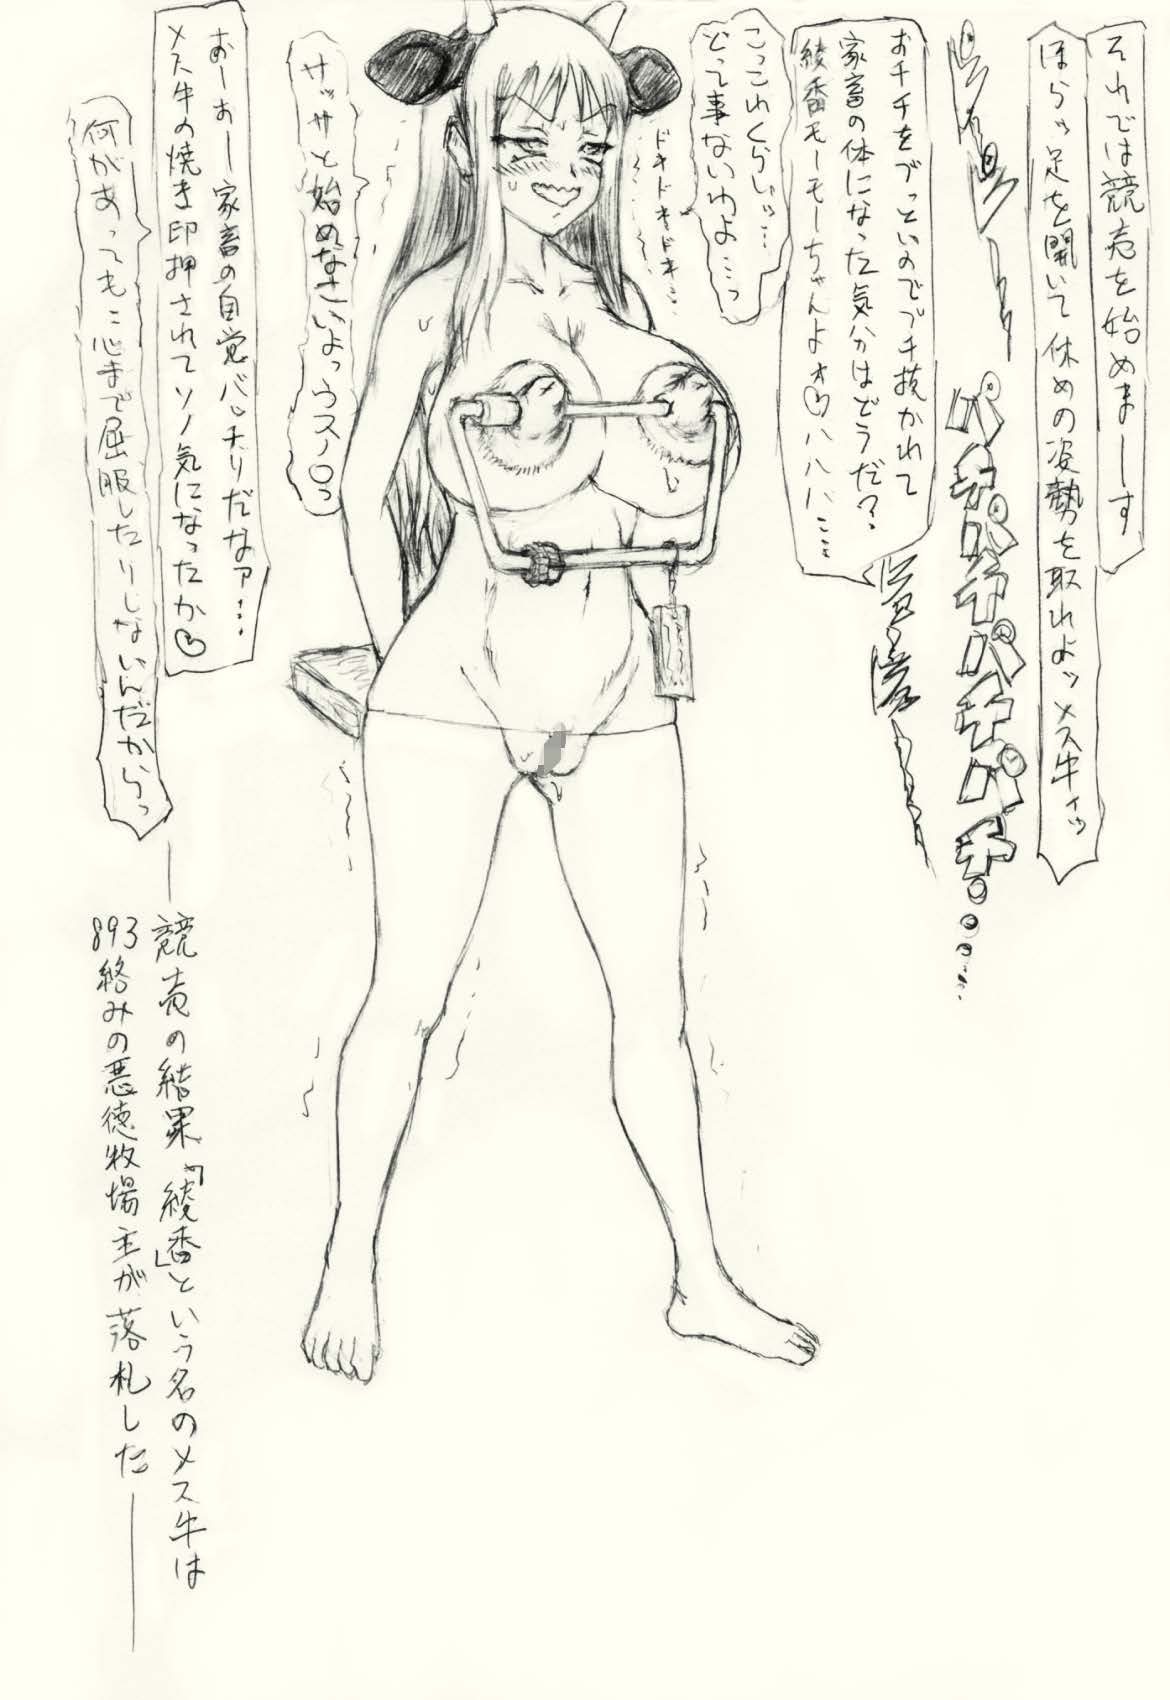 それでは競売を始めまーーす
ほらっ足を開いて休めの姿勢を取れよッメス牛ィッ
パチパチパチパチパチ。
おチチをブっといのでブチ抜かれて
家畜の体になった気分はどうだ?
綾香モーモーちゃんよォ♡ハハハ…
こっこれくらいッ…
どって事ないわよ…っ
ドキドキドキドキ…
サッサと始めなさいよっウスノロっ
おーおー家畜の自覚バッチリだなァ…
メス牛の焼き印押されてソノ気になったか♡
何があっても心まで屈服したりしないんだからっ
――競売の結果「綾香」という名のメス牛は
893絡みの悪徳牧場主が落札した――